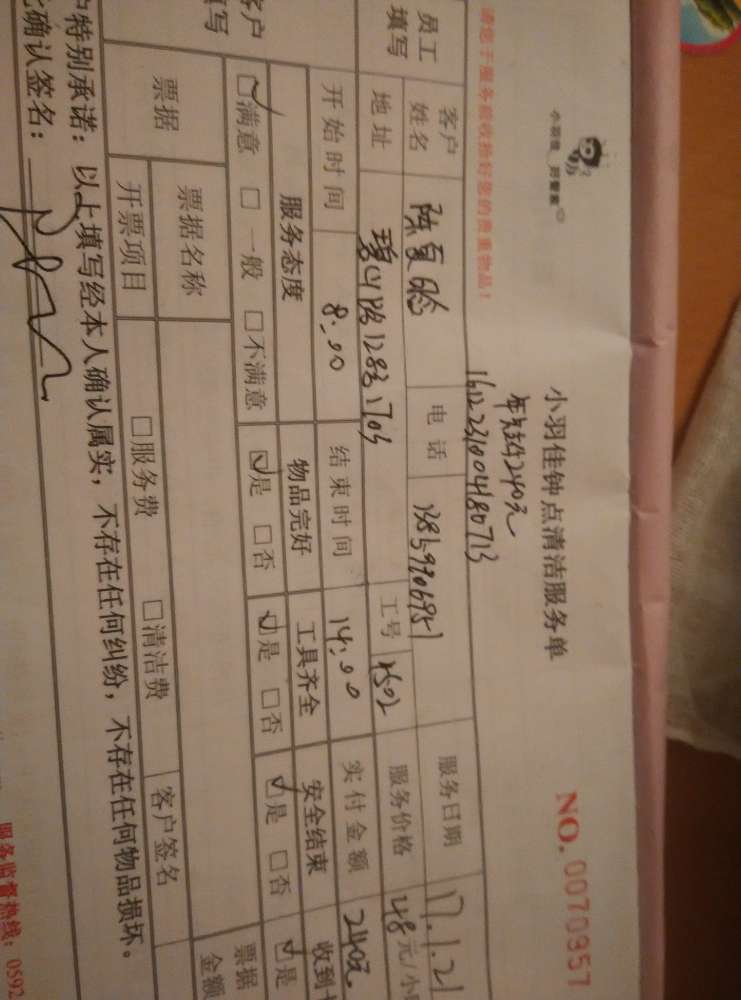 小羽佳钟点清洁服务单
NO. 0070357
年卡240元
1612231004180713
请您于服务前收拾好您的贵重物品!
员工填写
客户姓名 陈夏 电话 服务日期 17.1.21
地址 128 1703 工号 服务价格 48元/小
开始时间 8:00 结束时间 14:00 实付金额 240元
服务态度 物品完好 工具齐全 安全结束 收到
☑满意 □一般 □不满意 ☑是 □否 ☑是 □否 ☑是 □否 ☑是
票据 票据名称 票据金额
开票项目 □服务费 □清洁费 客户签名
户特别承诺:以上填写经本人确认属实,不存在任何纠纷,不存在任何物品损坏。
此确认签名:
服务监督热线:0592